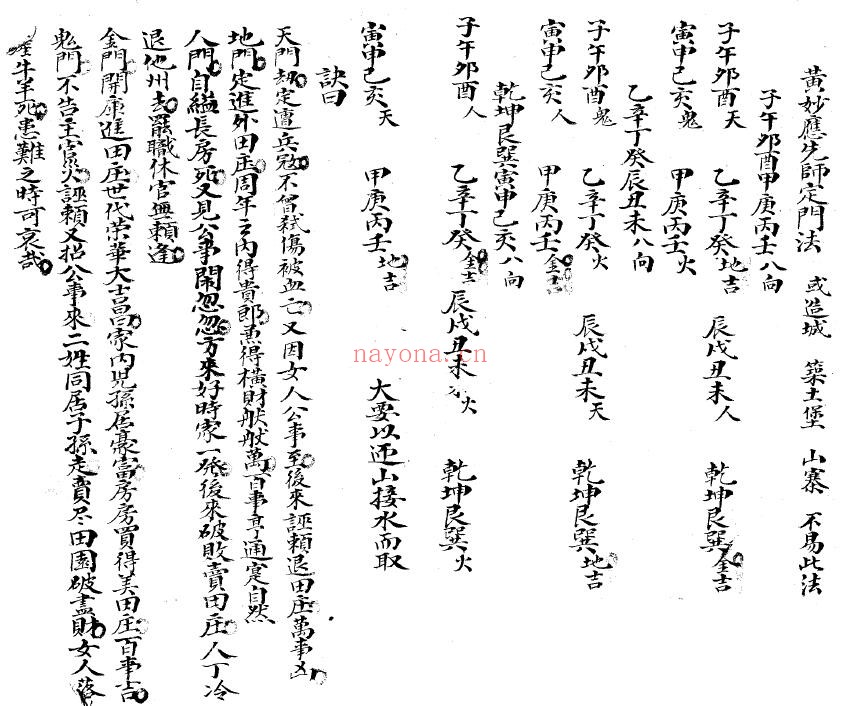 黃妙應先師定門法　或造城　築土堡　山寨　不易此法
子午卯酉甲庚丙壬八向
子午卯酉天　乙辛丁癸地吉　辰戌丑未人　乾坤艮巽金吉
寅申己亥鬼　甲庚丙壬火
乙辛丁癸辰丑未八向
子午卯酉鬼　乙辛丁癸火　辰戌丑未天　乾坤艮巽地吉
寅申己亥人　甲庚丙壬金吉
乾坤艮巽寅申己亥八向
子午卯酉人　乙辛丁癸金吉　辰戌丑未火　乾坤艮巽火
寅申己亥天　甲庚丙壬地吉　大要以迎山接水而取
訣曰
天門刼定遭兵寇不曾弒傷被血亡又因女人公事至後來誣賴退田庄萬事凶
地門定進外田庄周年之內得貴郎薫得橫財般般萬百事亨通寔自然
人門自縊長房死又見公事鬧忽忽方來好時家一發後來破敗賣田庄人丁冷
退他州去罷職休官無賴逢
金門開庫進田庄世代榮華大吉昌家內兒孫居豪富房房買得美田庄百事吉
鬼門不告主官火誣賴又招公事來二姓同居子孫走賣尽田園破盡財女人落
牛羊死患難之時可哀哉
nayona.cn